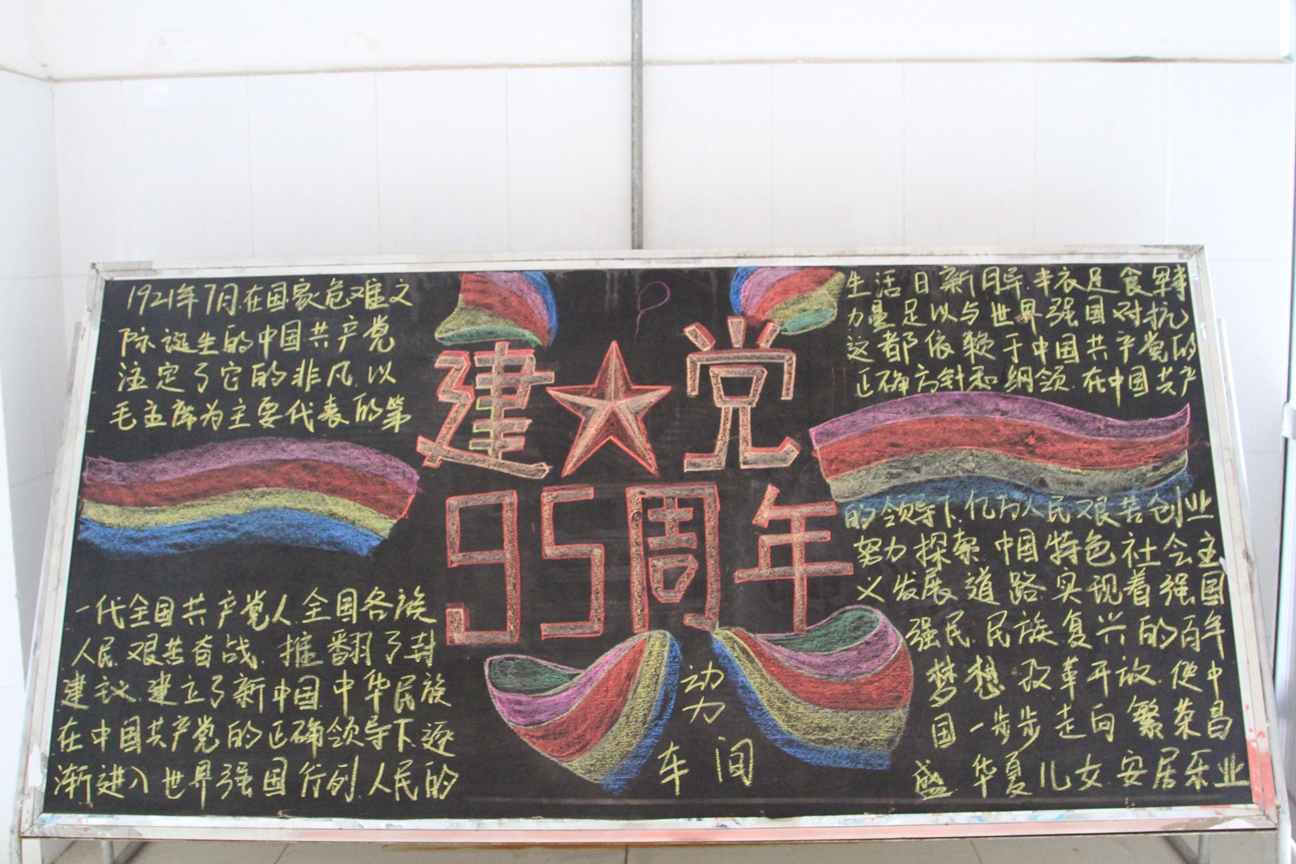 1921年7月在国家危难之
际诞生的中国共产党
注定了它的非凡.以
毛主席为主要代表的第
一代全国共产党人.全国各族
人民.艰苦奋战.推翻了封
建议.建立了新中国.中华民族
在中国共产党的正确领导下.逐
渐进入世界强国行列.人民的
建★党
95周年
动力
车间
生活日新月异.丰衣足食.
力量足以与世界强国对抗
这都依赖于中国共产党的
正确方针和纲领.在中国共产
的领导下.亿万人民艰苦创业
努力探索.中国特色社会主
义发展道路实现着强国
强民.民族复兴的百年
梦想.改革开放.使中
国一步步走向繁荣昌
盛.华夏儿女安居乐业